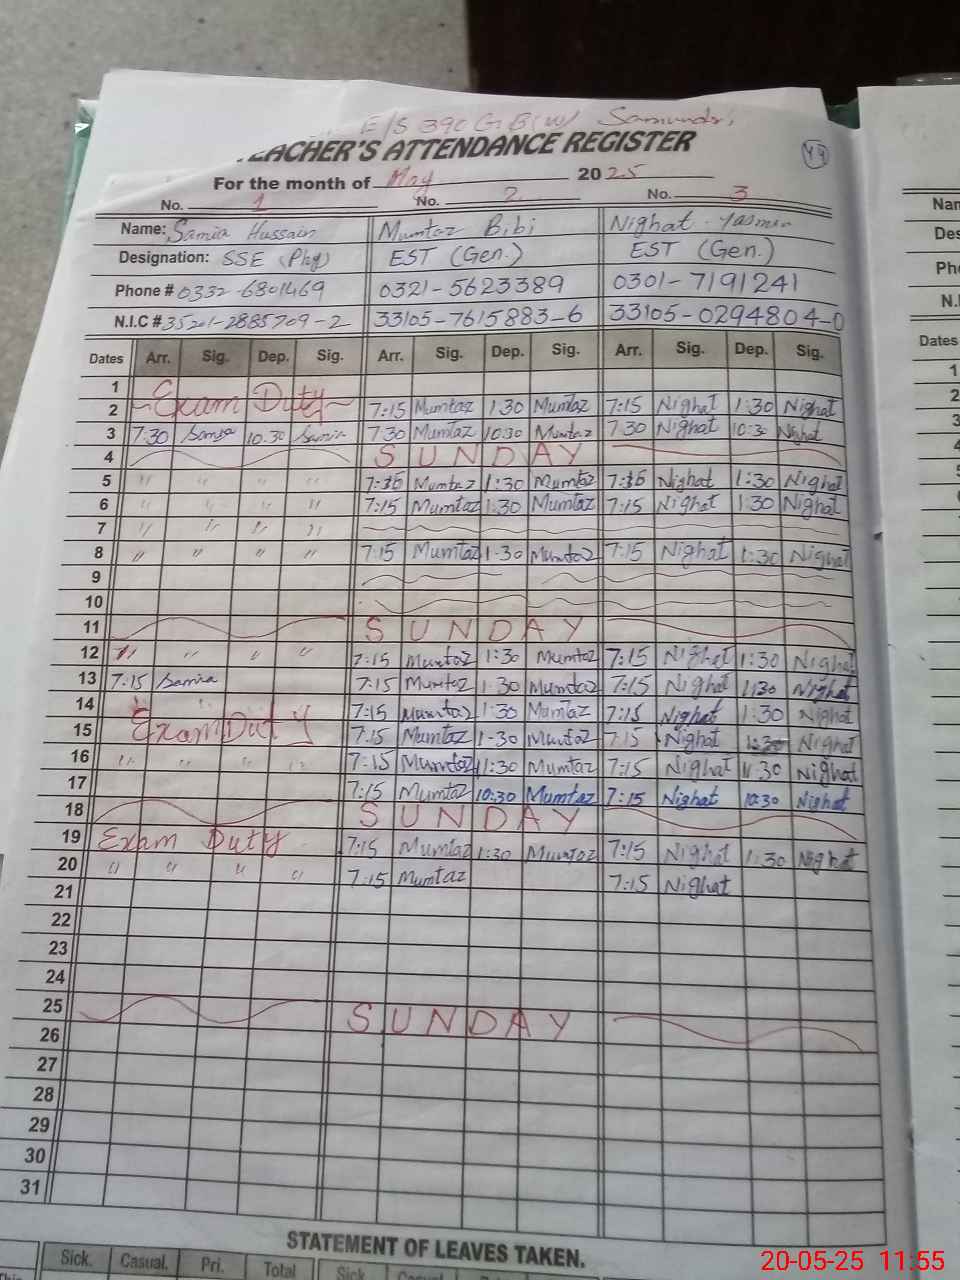 E/S 390 G.B(W) Samundri
TEACHER'S ATTENDANCE REGISTER
49
For the month of May 2025
No. 1 No. 2 No. 3
Name: Samia Hussain Mumtaz Bibi Nighat Yasmin
Designation: SSE (Phy) EST (Gen.) EST (Gen.)
Phone # 0332-6801469 0321-5623389 0301-7191241
N.I.C # 35201-2885709-2 33105-7615883-6 33105-0294804-0
Dates Arr. Sig. Dep. Sig. Arr. Sig. Dep. Sig. Arr. Sig. Dep. Sig.
1 Exam Duty
2 7:15 Mumtaz 1:30 Mumtaz 7:15 Nighat 1:30 Nighat
3 7:30 Samia 10:30 Samia 7:30 Mumtaz 10:30 Mumtaz 7:30 Nighat 10:30 Nighat
4 SUNDAY
5 " " " " Mumtaz 1:30 Mumtaz Nighat 1:30 Nighat
6 " " " " 7:15 Mumtaz 1:30 Mumtaz 7:15 Nighat 1:30 Nighat
7 " " " "
8 " " " " 7:15 Mumtaz 1:30 Mumtaz 7:15 Nighat 1:30 Nighat
9
10
11 SUNDAY
12 " " " " 7:15 Mumtaz 1:30 Mumtaz 7:15 Nighat 1:30 Nighat
13 7:15 Samia 7:15 Mumtaz 1:30 Mumtaz 7:15 Nighat 1:30 Nighat
14 Exam Duty 7:15 Mumtaz 1:30 Mumtaz 7:15 Nighat 1:30 Nighat
15 7:15 Mumtaz 1:30 Mumtaz 7:15 Nighat 1:30 Nighat
16 " " " " 7:15 Mumtaz 1:30 Mumtaz 7:15 Nighat 1:30 Nighat
17 7:15 Mumtaz 10:30 Mumtaz 7:15 Nighat 10:30 Nighat
18 SUNDAY
19 Exam Duty 7:15 Mumtaz 1:30 Mumtaz 7:15 Nighat 1:30 Nighat
20 " " " " 7:15 Mumtaz 7:15 Nighat
21
22
23
24
25 SUNDAY
26
27
28
29
30
31
STATEMENT OF LEAVES TAKEN.
Sick. Casual. Pri. Total Sick Casual
Nam
Des
Pho
N.I.
Dates
1
2
3
4
5
20-05-25 11:55